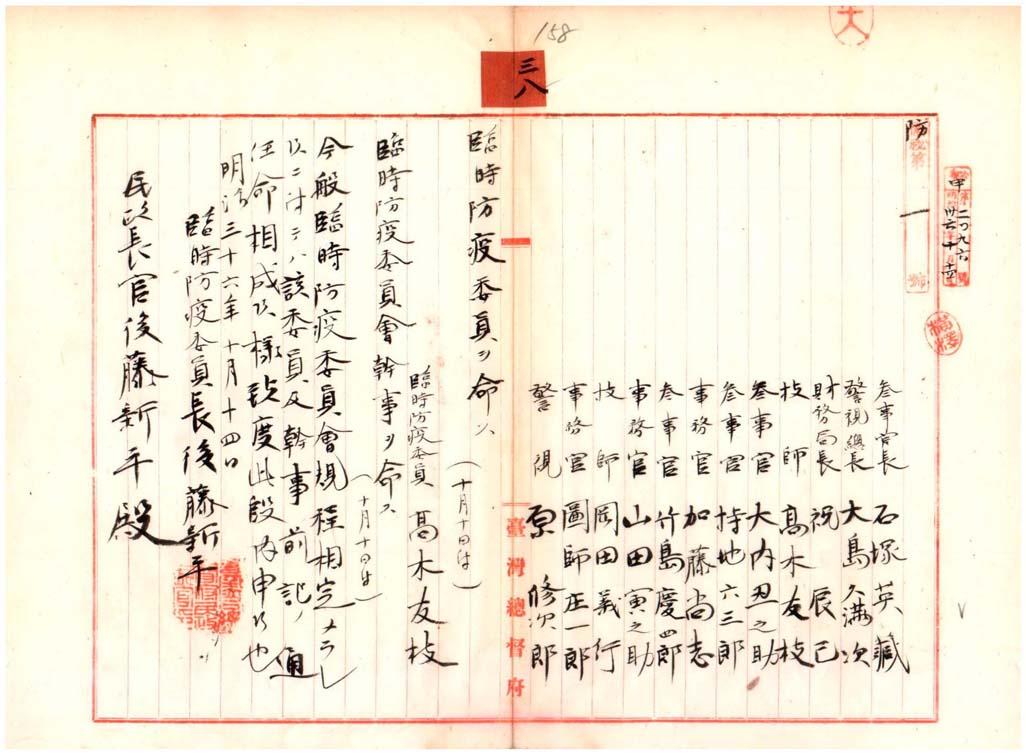 158
三八
防
一
參事官長 石塚英藏
警視總長 大島久滿次
財務局長 祝辰巳
技師 髙木友枝
參事官 大內丑之助
參事官 持地六三郎
事務官 加藤尚志
參事官 竹島慶四郎
事務官 山田寅之助
技師 岡田義行
事務官 圖師庄一郎
警視 原修次郎
臺灣總督府
臨時防疫委員ヲ命ス
(十月十日付)
臨時防疫委員 髙木友枝
臨時防疫委員會幹事ヲ命ス
(十月十日付)
今般臨時防疫委員會規程相定メラレ
候ニ付テハ該委員及幹事前記ノ通
任命相成候樣致度此段內申候也
明治三十六年十月十四日
臨時防疫委員長後藤新平
民政長官後藤新平殿